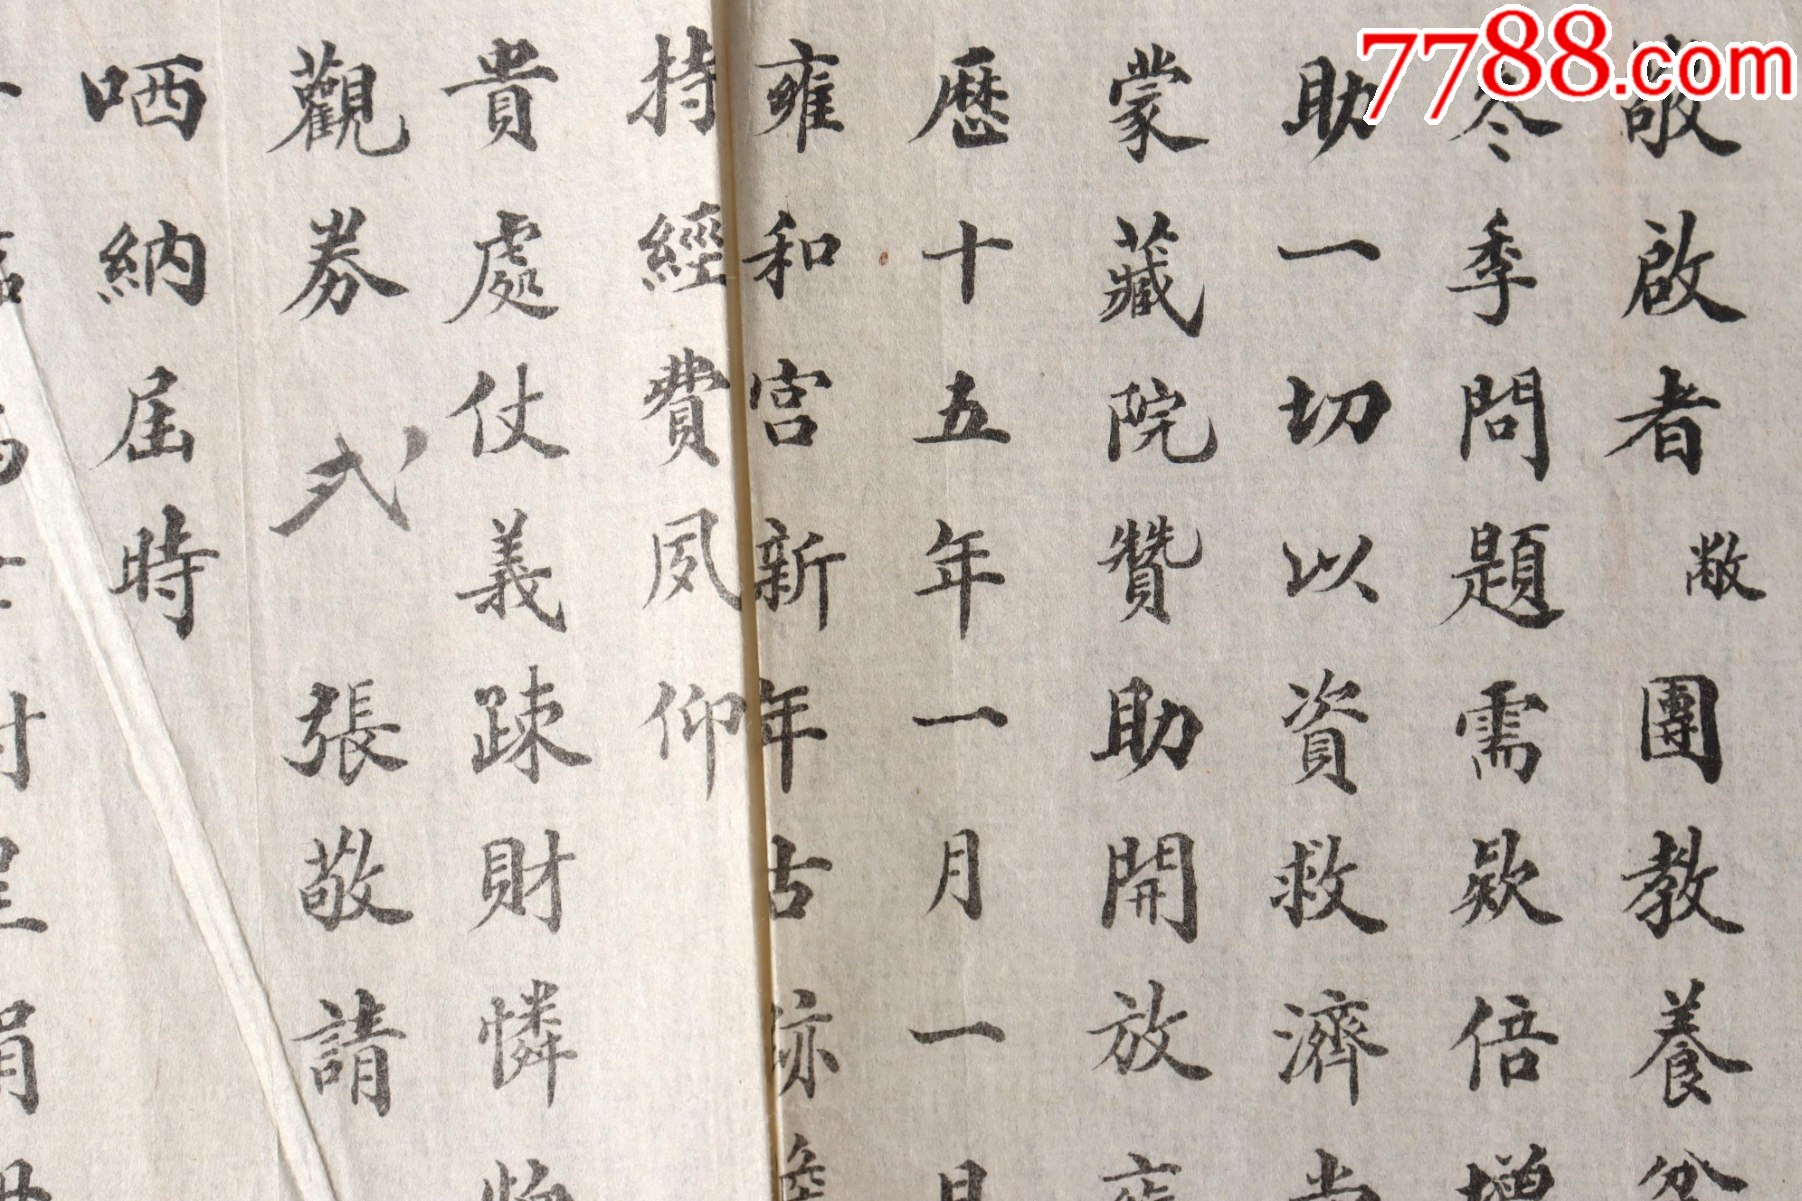 敬啟者敝團教養
冬季問題需欵倍增
助一切以資救濟
蒙藏院贊助開放雍
歷十五年一月一
雍和宮新年古跡
持經費夙仰
貴處仗義疎財憐
觀券弍張敬請
哂納届時
7788.com